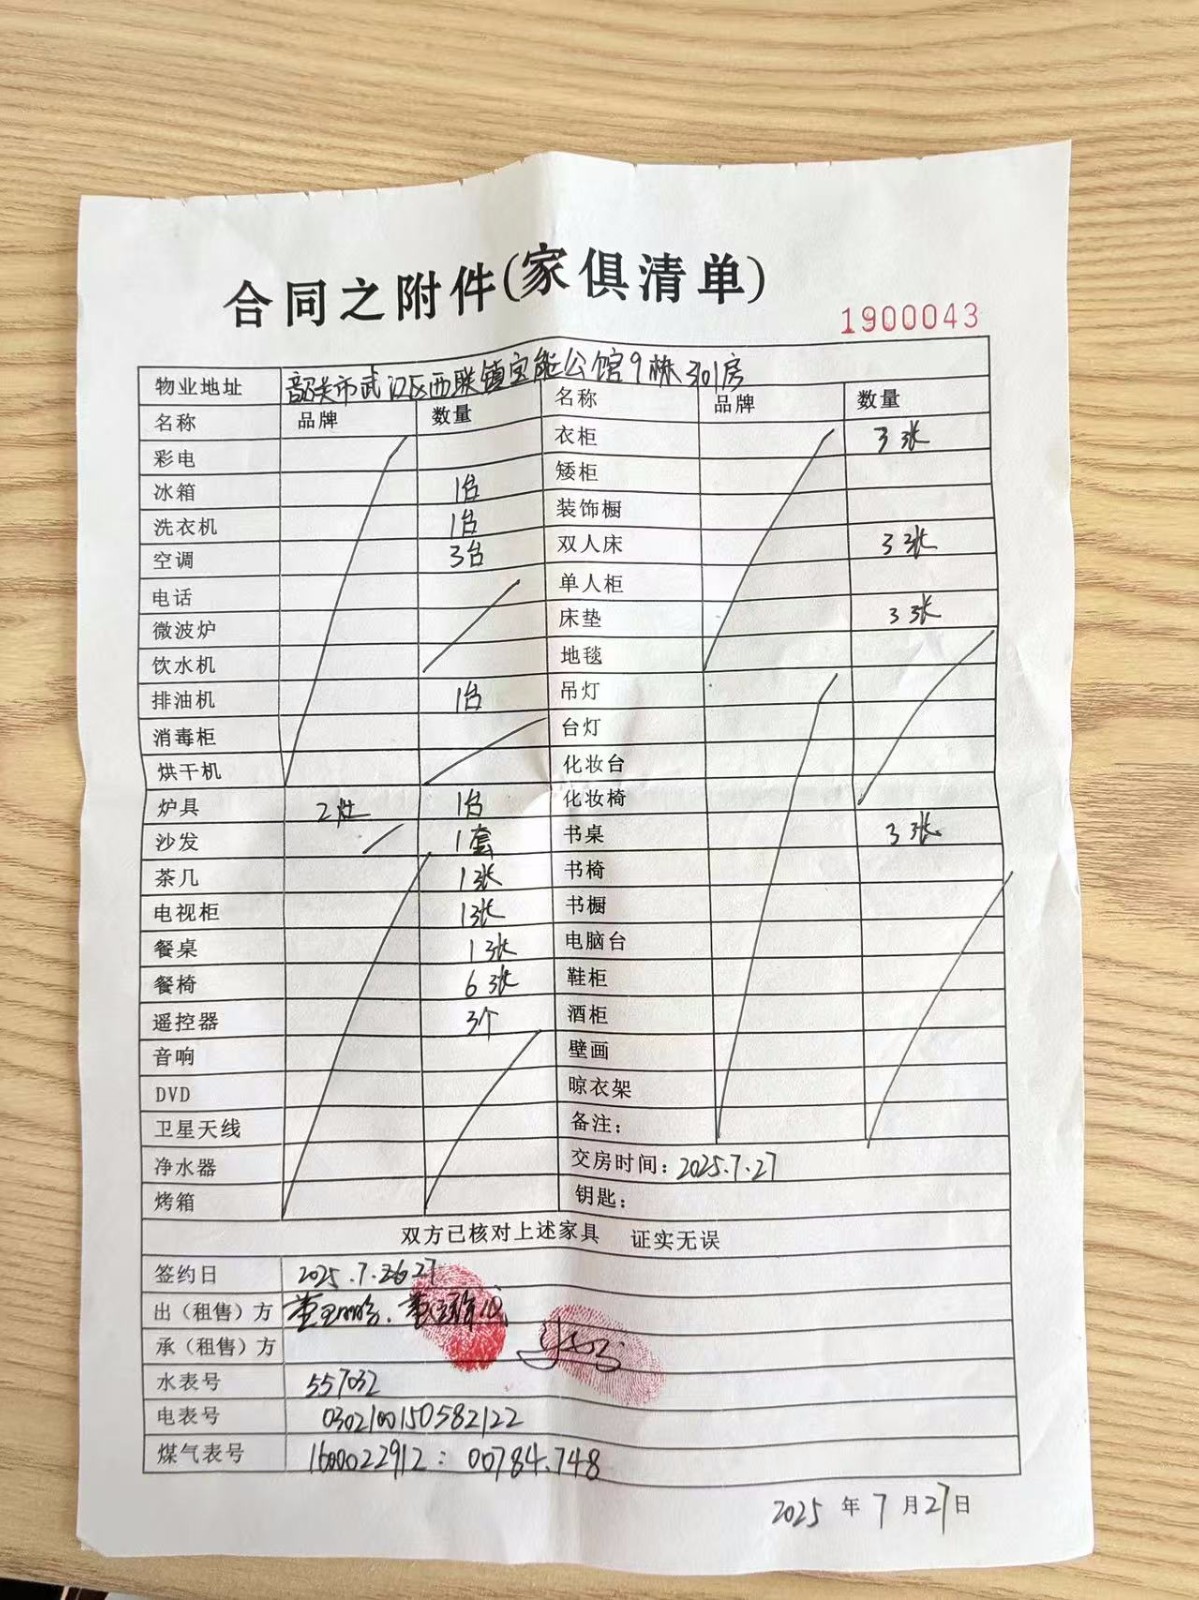 合同之附件(家俱清单)
1900043
物业地址 韶关市武江区西联镇宝能公馆9栋301房
名称 品牌 数量 名称 品牌 数量
彩电 衣柜 3张
冰箱 1台 矮柜
洗衣机 1台 装饰橱
空调 3台 双人床 3张
电话 单人柜
微波炉 床垫 3张
饮水机 地毯
排油机 1台 吊灯
消毒柜 台灯
烘干机 化妆台
炉具 2灶 1台 化妆椅
沙发 1套 书桌 3张
茶几 1张 书椅
电视柜 1张 书橱
餐桌 1张 电脑台
餐椅 6张 鞋柜
遥控器 3个 酒柜
音响 壁画
DVD 晾衣架
卫星天线 备注：
净水器 交房时间：2025.7.27
烤箱 钥匙：
双方已核对上述家具 证实无误
签约日 2025.7.27
出（租售）方
承（租售）方
水表号 557032
电表号 0302100150582122
煤气表号 1600022912：00784.748
2025年7月27日